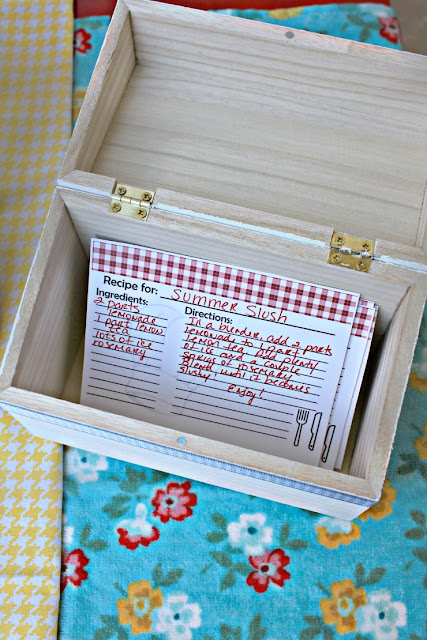 Recipe for: Summer Slush
Ingredients:
2 parts
lemonade
1 part lemon
tea
lots of ice
rosemary
Directions:
In a blender add 2 parts
lemonade to 1 part
lemon tea. Add plenty
of ice and a couple
sprigs of rosemary.
Blend until it becomes
slushy!
Enjoy!